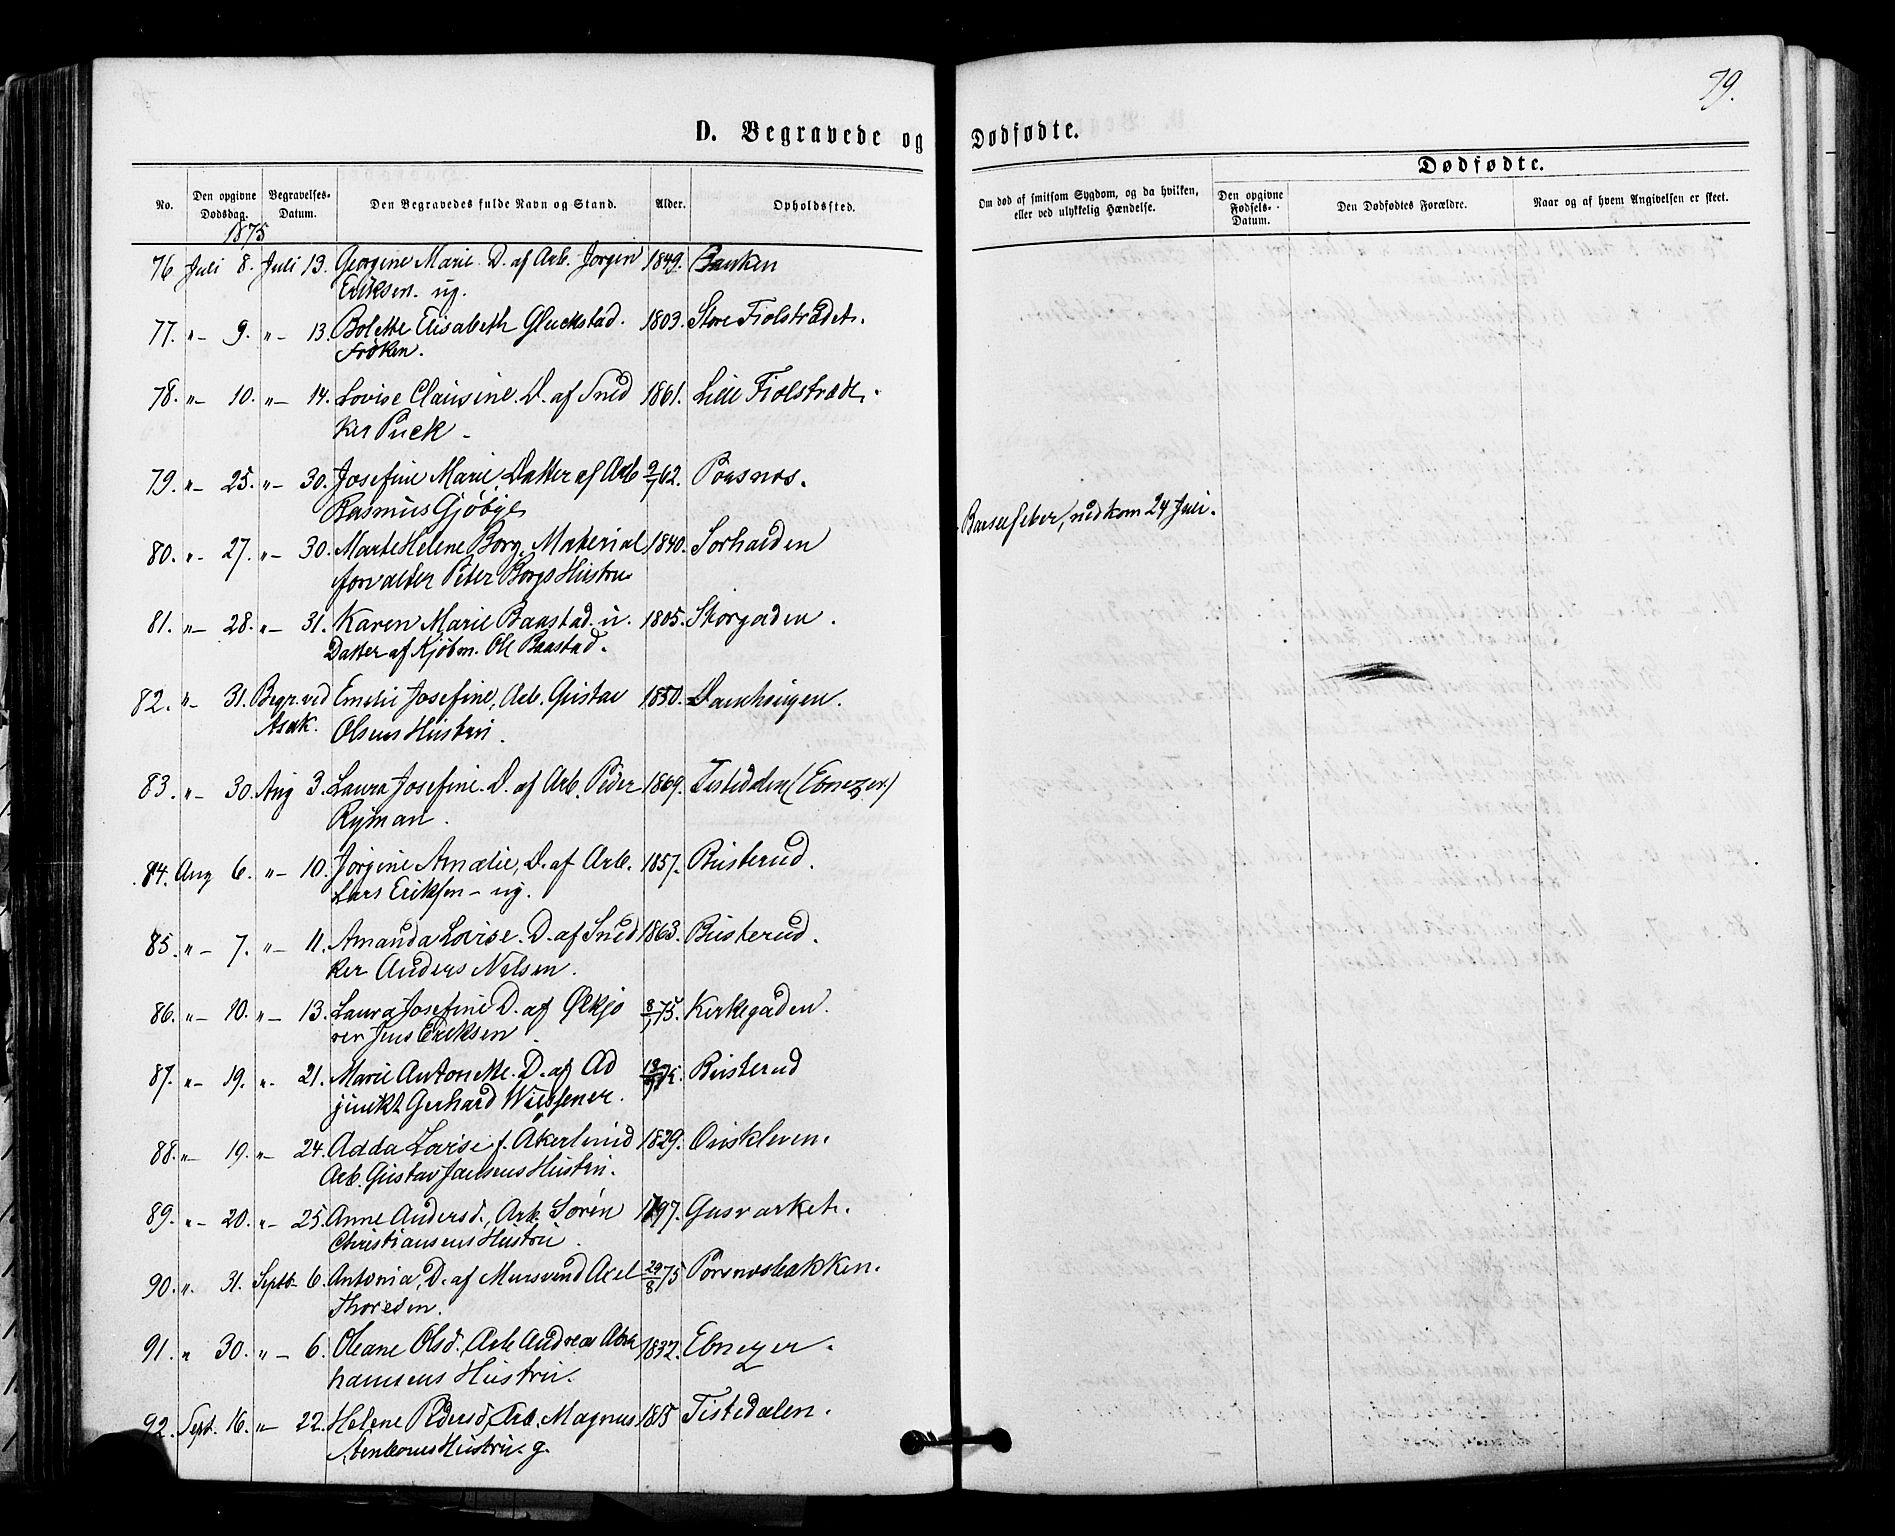 79.
D. Begravede og Dødfødte.
Dødfødte.
No.
Den opgivne Dødsdag.
Begravelses-Datum.
Den Begravedes fulde Navn og Stand.
Alder.
Opholdssted.
Om død af smitsom Sygdom, og da hvilken, eller ved ulykkelig Hændelse.
Den opgivne Fødsels-Datum.
Den Dødfødtes Forældre.
Naar og af hvem Angivelsen er skeet.
1875
76 Juli 8. Juli 13. Georgine Marie. D. af Arb. Jørgen 1849. Banken
Eriksen. ug.
77. " 9. " 13. Bolette Elisabeth Gluckstad. 1803. Store Fiolstrædet.
Frøken.
78. " 10. " 14. Lovise Clausine. D. af Sned 1861. Lille Fiolstræde.
ker Puck
79. " 25. " 30. Josefine Marie, Datter af Arb 9/1 62. Porsnæs.
Rasmus Gjøbye
80. " 27. " 30. Marte Helene Borg, Material 1840. Sørhalden Barselfeber, nedkom 24 Juli.
forvalter Peter Borgs Hustru
81. " 28. " 31. Karen Marie Baastad. u. 1805. Storgaden.
Datter af Kjøbm. Ole Baastad.
82. " 31. Begr. ved Emelie Josefine, Arb. Gustav 1850. Damhaugen.
Asak. Olsens Hustru.
83. " 30. Aug 3. Laura Josefine. D. af Arb. Peder 1869. Tistedalen (Ebnezer)
Ryman.
84. Aug 6. " 10. Jørgine Amalie, D. af Arb. 1857. Busterud.
Lars Eriksen ug.
85. " 7. " 11. Amanda Lovise. D. af Sned 1863. Busterud.
ker Anders Nilsen.
86. " 10. " 13. Laura Josefine D. af Ølkjø 8/1 75. Kirkegaden.
rer Jens Eriksen.
87. " 19. " 21. Marie Antonette. D. af Ad 75. Busterud
junkt Gerhard Wiessener.
88. " 19. " 24. Adda Lovise f. Åkerlund 1829. Oriskleven.
Arb. Gustav Jansens Hustru.
89. " 20. " 25. Anne Andersd., Arb. Søren 1797. Gasværket.
Christiansens Hustru.
90. " 31. Septb. 6. Antonia, D. af Mursvend Axel 29/8 75 Porsnæsbakken.
Thoresen.
91. " 30. " 6. Oleane Olsd., Arb Andreas Abra 1832. Ebnezer.
hamsens Hustru.
92. Sept. 16. " 22. Helene Pedersd, Arb. Magnus 1815 Tistedalen.
Hustru. g.